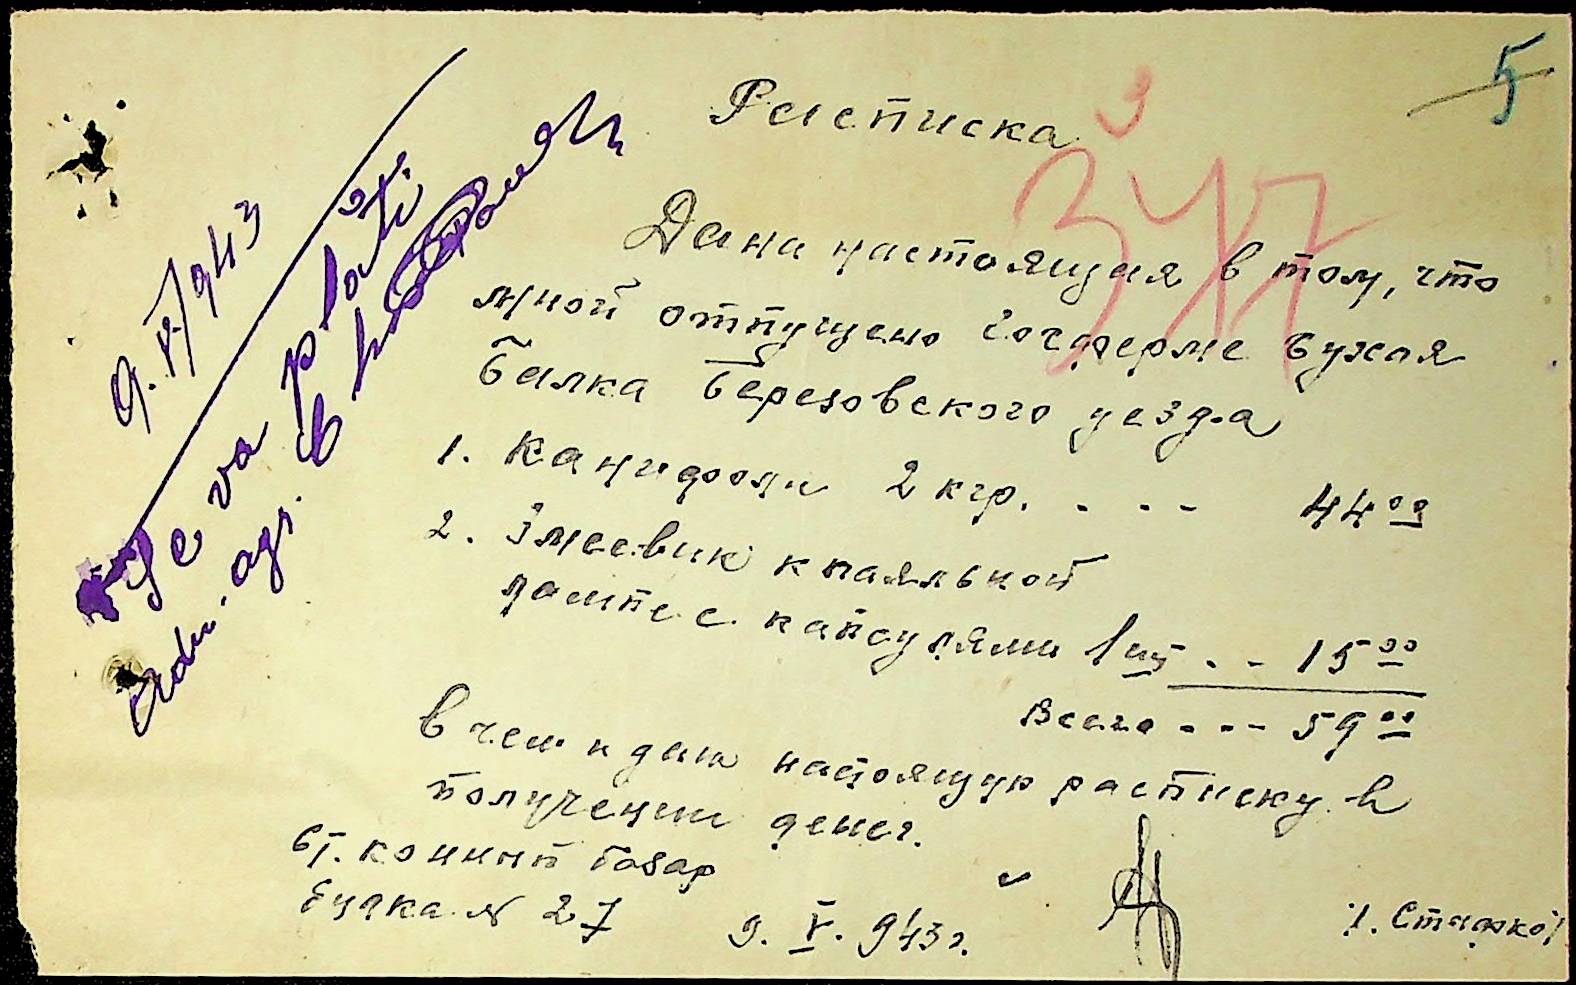 5
3
347
Расписка
Дана настоящая в том, что
мной отпущено госферме Чужая
балка Березовского уезда
1. Канифоли 2 кгр. . - - - 44 00
2. Змеевик к паяльной
лампе с капсулями 1 шт . - - 15 00
Всего - - - 59 00
в чем и даю настоящую расписку в
получении денег.
Ст. конный базар
Будка № 27
9. V. 943 г.
9.V/943
Se va plăti
Adm. agr.